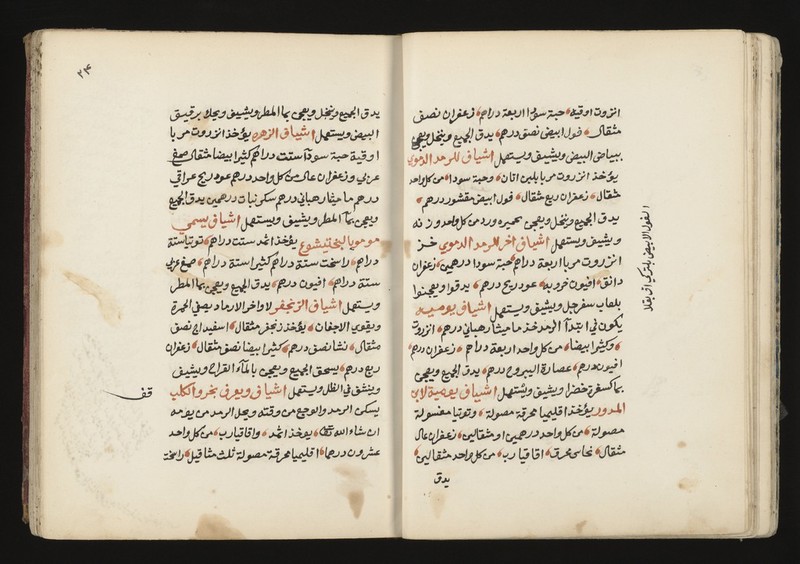 انزروت اوقية حبة سودا اربعة دراهم زعفران نصف
مثقال فول ابيض نصف درهم يدق الجميع وينخل ويعجن
ببياض البيض ويشيف ويستعمل اشياف للرمد الدموي
يؤخذ انزروت مربا بلبن اتان وحبة سودا من كل واحد
مثقال زعفران ربع مثقال فول ابيض مقشور درهم
يدق الجميع وينخل ويعجن ورد من كل واحد وزنه
ويشيف ويستعمل اشياف اخر للرمد الدموي خذ
انزروت مربا اربعة دراهم حبة سودا درهمين زعفران
دانق افيون خروبه عود ريح درهم يدقوا ويعجنوا
بلعاب سفرجل ويشيف ويستعمل اشياف يوميه
يكون في ابتدآ الرمد خذ ماميثا رهباني درهم انزروت
وكثيرا بيضا من كل واحد اربعة دراهم زعفران درهم
افيون درهم عصارة اليبروح درهم يدق الجميع ويعجن
بما كسفرة خضرا ويشيف ويستعمل اشياف
يؤخذ اقليميا محرقة مصولة وتوتيا مغسولة
مصولة من كل واحد درهمين او مثقالين زعفران
مثقال نحاس محرق اقاقيا رب من كل واحد مثقالين
يدق
الفول الابيض بالتركي
٢٤
يدق الجميع وينخل ويعجن بما المطر ويشيف ويحك برقيق
البيض ويستعمل اشياف الزهره يؤخذ انزروت مربا
اوقية حبة سودآ ستت دراهم كثيرا بيضا مثقال صمغ
عربي وزعفران من كل واحد درهم عود ريح عراقي
درهم ماميثا رهباني درهم سكر نبات درهمين يدق الجميع
ويعجن بمآ المطر ويشيف ويستعمل اشياف يسمي
مومويا لبختيشوع يؤخذ اثمد ستت دراهم توتيا ستة
دراهم راسخت ستة دراهم كثيرا ستة دراهم صمغ عربي
ستة دراهم افيون درهم يدق الجميع ويعجن بمآ المطر
ويستعمل اشياف الزنجفر لاواخر الارماد يصفي الحمرة
ويقوي الاجفان يؤخذ زنجفر مثقال اسفيداج نصف
مثقال نشا نصف درهم كثيرا بيضا نصف مثقال زعفران
ربع درهم يسحق الجميع ويعجن بالمآء القراح ويشيف
وينشف في الظل ويستعمل اشياف ويعرف بخرو الكلب
يسكن الرمد والوجع من وقته ويحل الرمد من يومه
ان شاء الله تعالى يوخذ اثمد واقاقيا رب من كل واحد
عشرون درهما اقليميا محرقة مصولة ثلث مثاقيل راسخت
قف